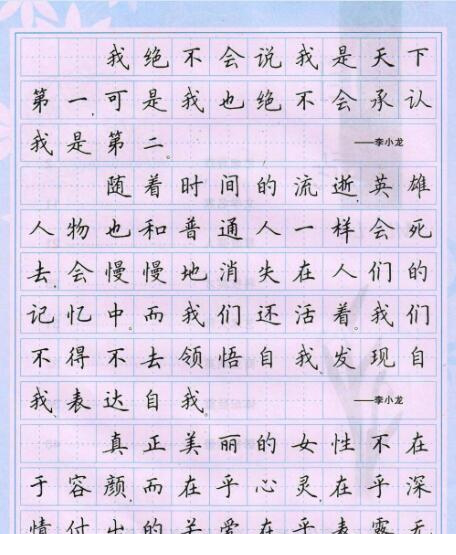 我绝不会说我是天下
第一,可是我也绝不会承认
我是第二。 ——李小龙
随着时间的流逝,英雄
人物也和普通人一样会死
去,会慢慢地消失在人们的
记忆中。而我们还活着。我们
不得不去领悟自我、发现自
我、表达自我。 ——李小龙
真正美丽的女性不在
于容颜,而在乎心灵,在乎深
情付出的关爱,在乎表露无